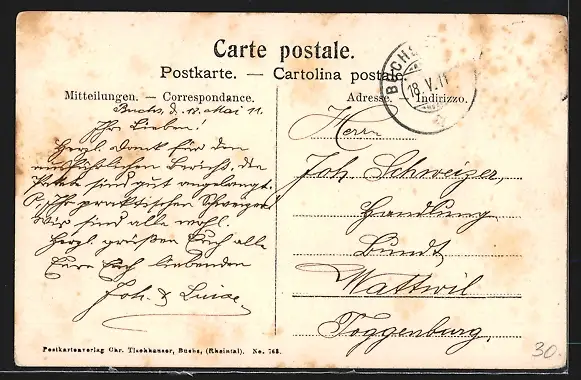 Carte postale.
Postkarte. — Cartolina postale.
Mitteilungen. — Correspondance.
Adresse. — Indirizzo.
BUCHS
18.V.11
Buchs, d. 18. Mai 11.
Ihr Lieben!
Herzl. Dank für den
ausführlichen Bericht, die
sind gut angelangt.
Wir sind alle wohl.
Herzl. grüßen Euch alle
Eure Euch liebenden
Joh. & Luise
Herrn
Joh. Schweizer,
Handlung
Bundt
Wattwil
Toggenburg.
Postkartenverlag Chr. Tischhauser, Buchs, (Rheintal). No. 763.
30.